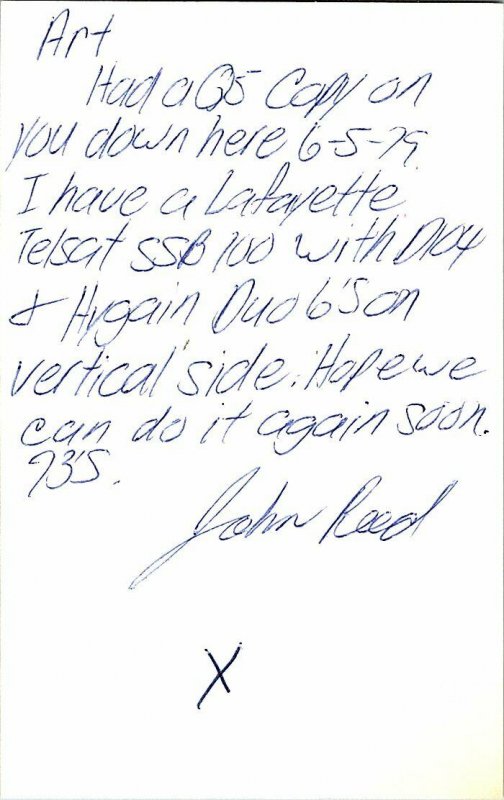 Art
Had a Q5 Copy on
you down here 6-5-79.
I have a Lafayette
Telsat SSB 100 with D104
& Hygain Duo 6's on
vertical side. Hope we
can do it again soon.
73'S.
John Reed
X